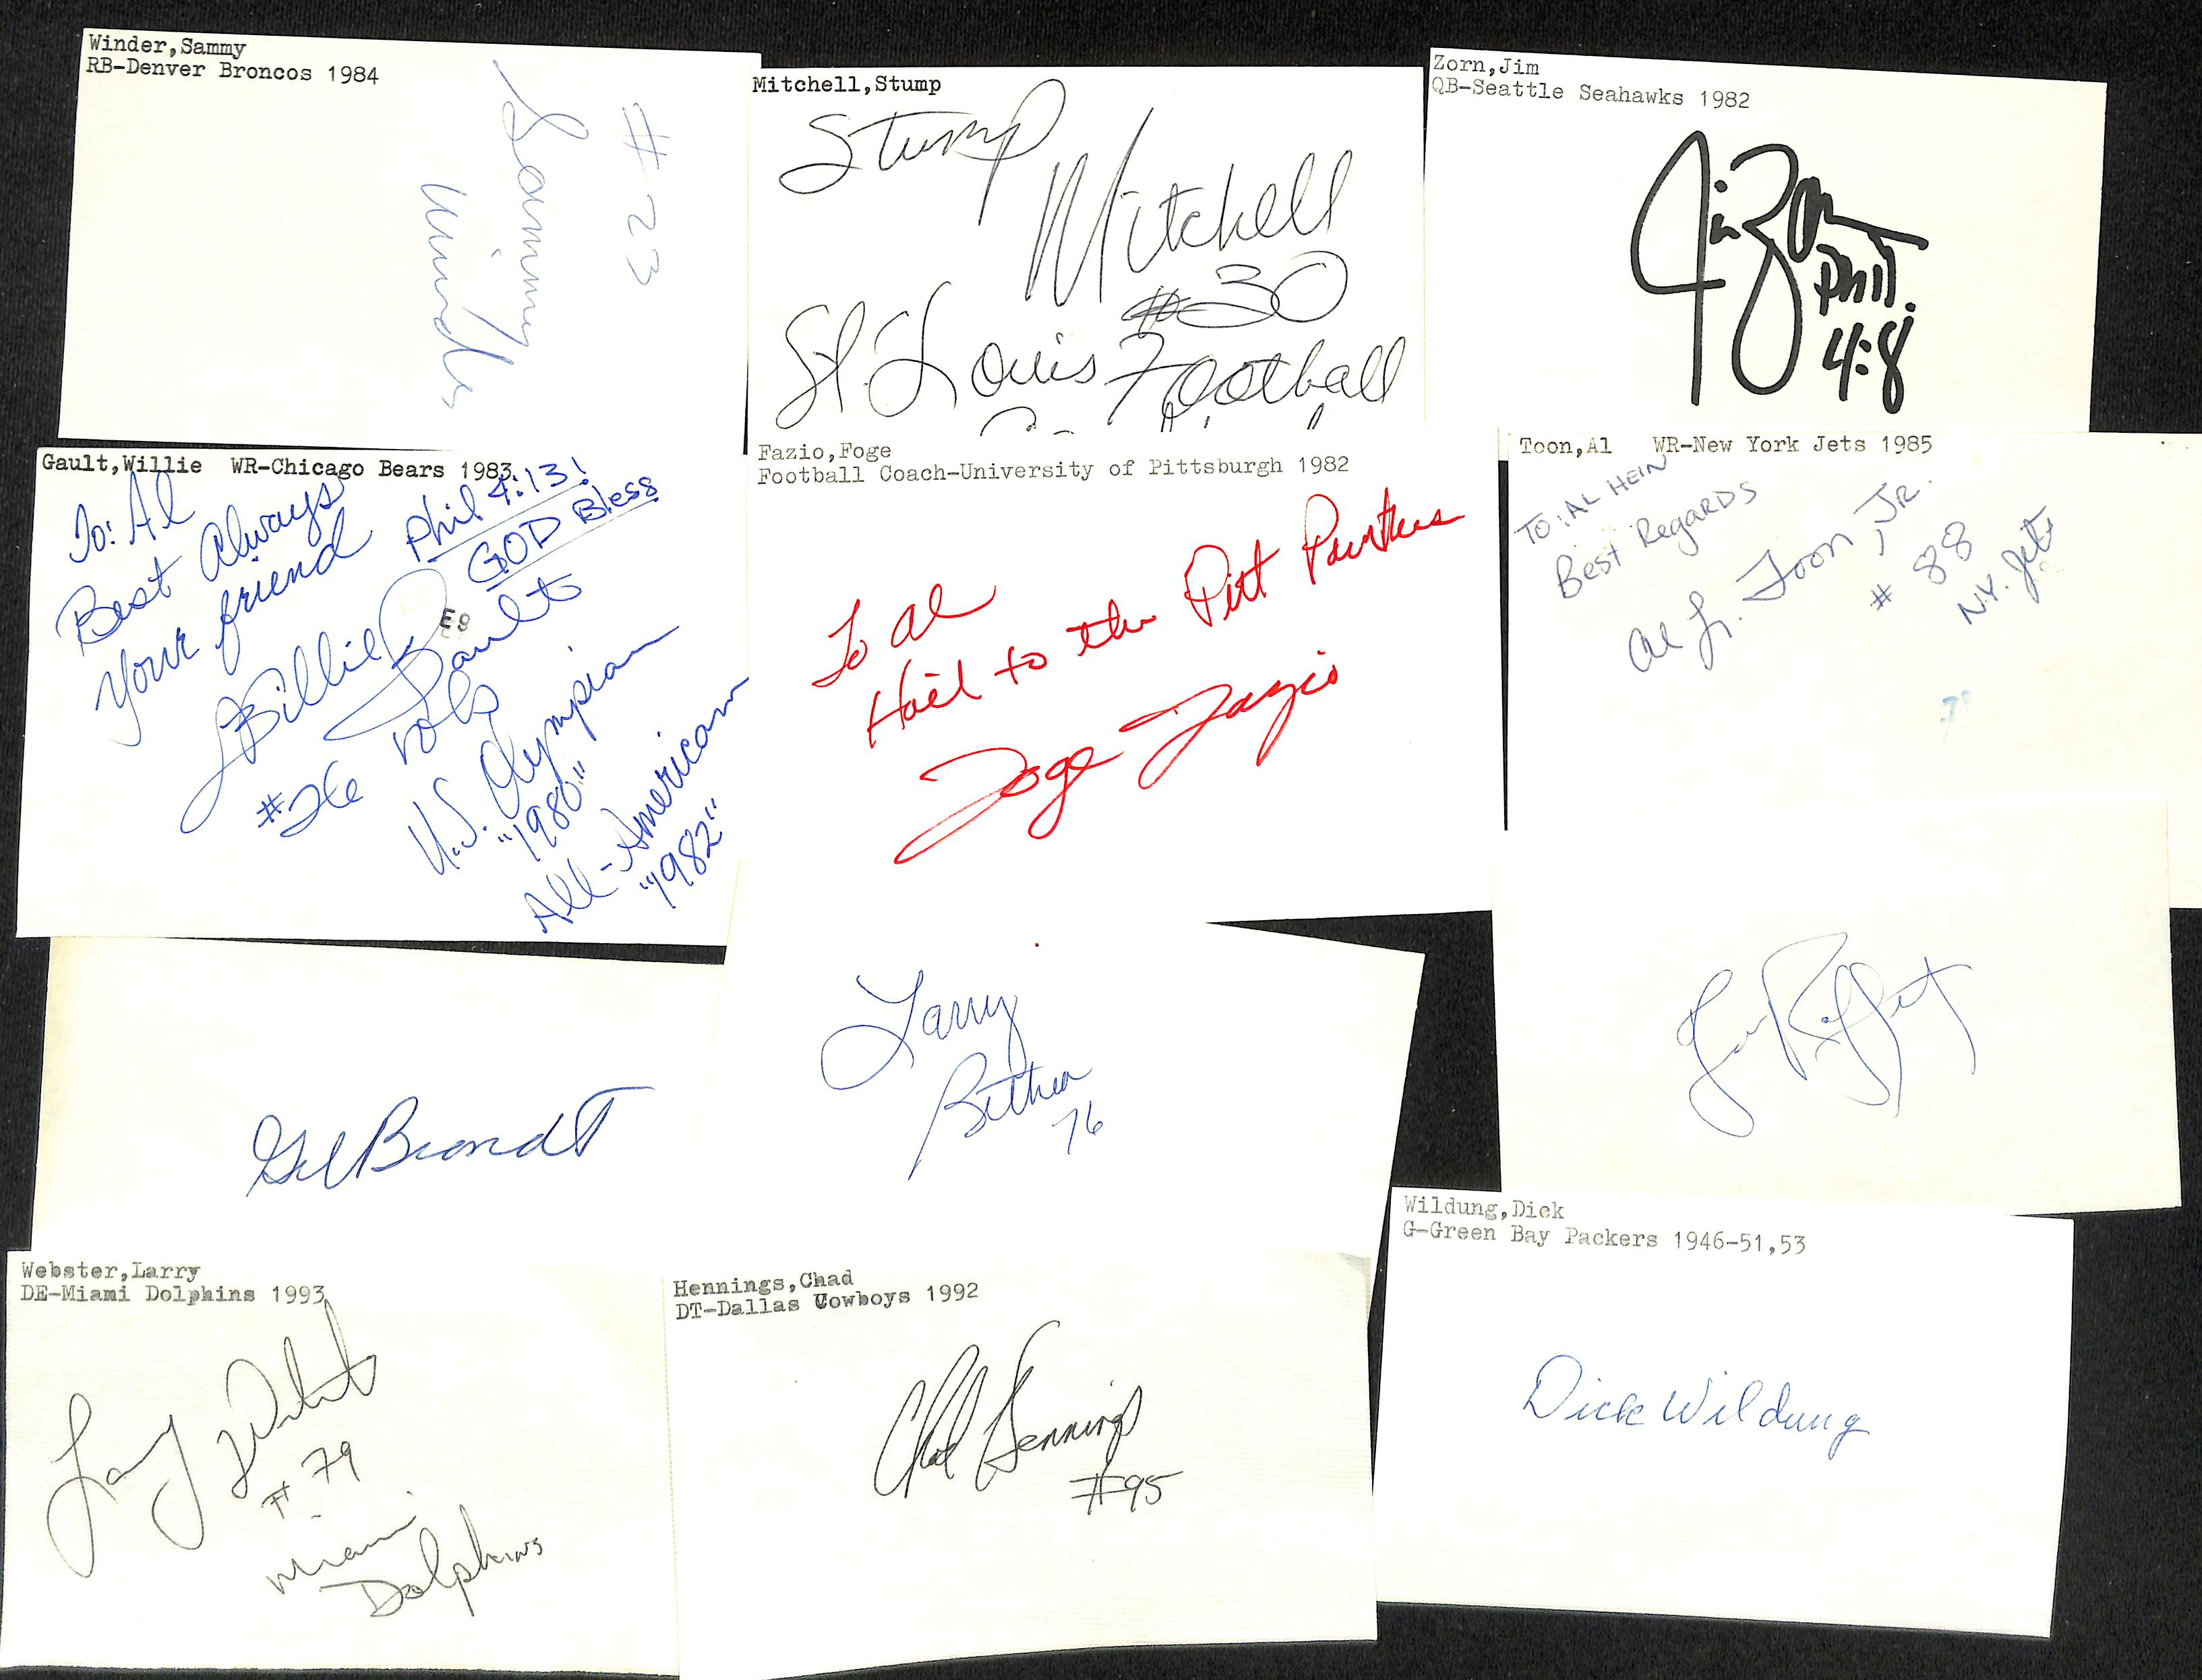 Winder,Sammy
RB-Denver Broncos 1984
#23
Sammy
Winder
Mitchell,Stump
Stump
Mitchell
#30
St. Louis Football
Zorn,Jim
QB-Seattle Seahawks 1982
Jim Zorn
Phil.
4:8
Gault,Willie WR-Chicago Bears 1983
To: Al
Best Always
Your friend
Phil 4:13!
GOD Bless
Willie Gault
E9
#26 Vols
U.S. Olympian
"1980"
All-American
"1982"
Fazio,Foge
Football Coach-University of Pittsburgh 1982
To Al
Hail to the Pitt Panthers
Foge Fazio
Toon,Al WR-New York Jets 1985
TO: AL HEIN
Best Regards
Al L. Toon, Jr.
# 88
N.Y. Jets
Gil Brandt
Larry
Bethea
76
Webster,Larry
DE-Miami Dolphins 1993
Larry Webster
#79
Miami
Dolphins
Hennings,Chad
DT-Dallas Cowboys 1992
Chad Hennings
#95
Wildung,Dick
G-Green Bay Packers 1946-51,53
Dick Wildung